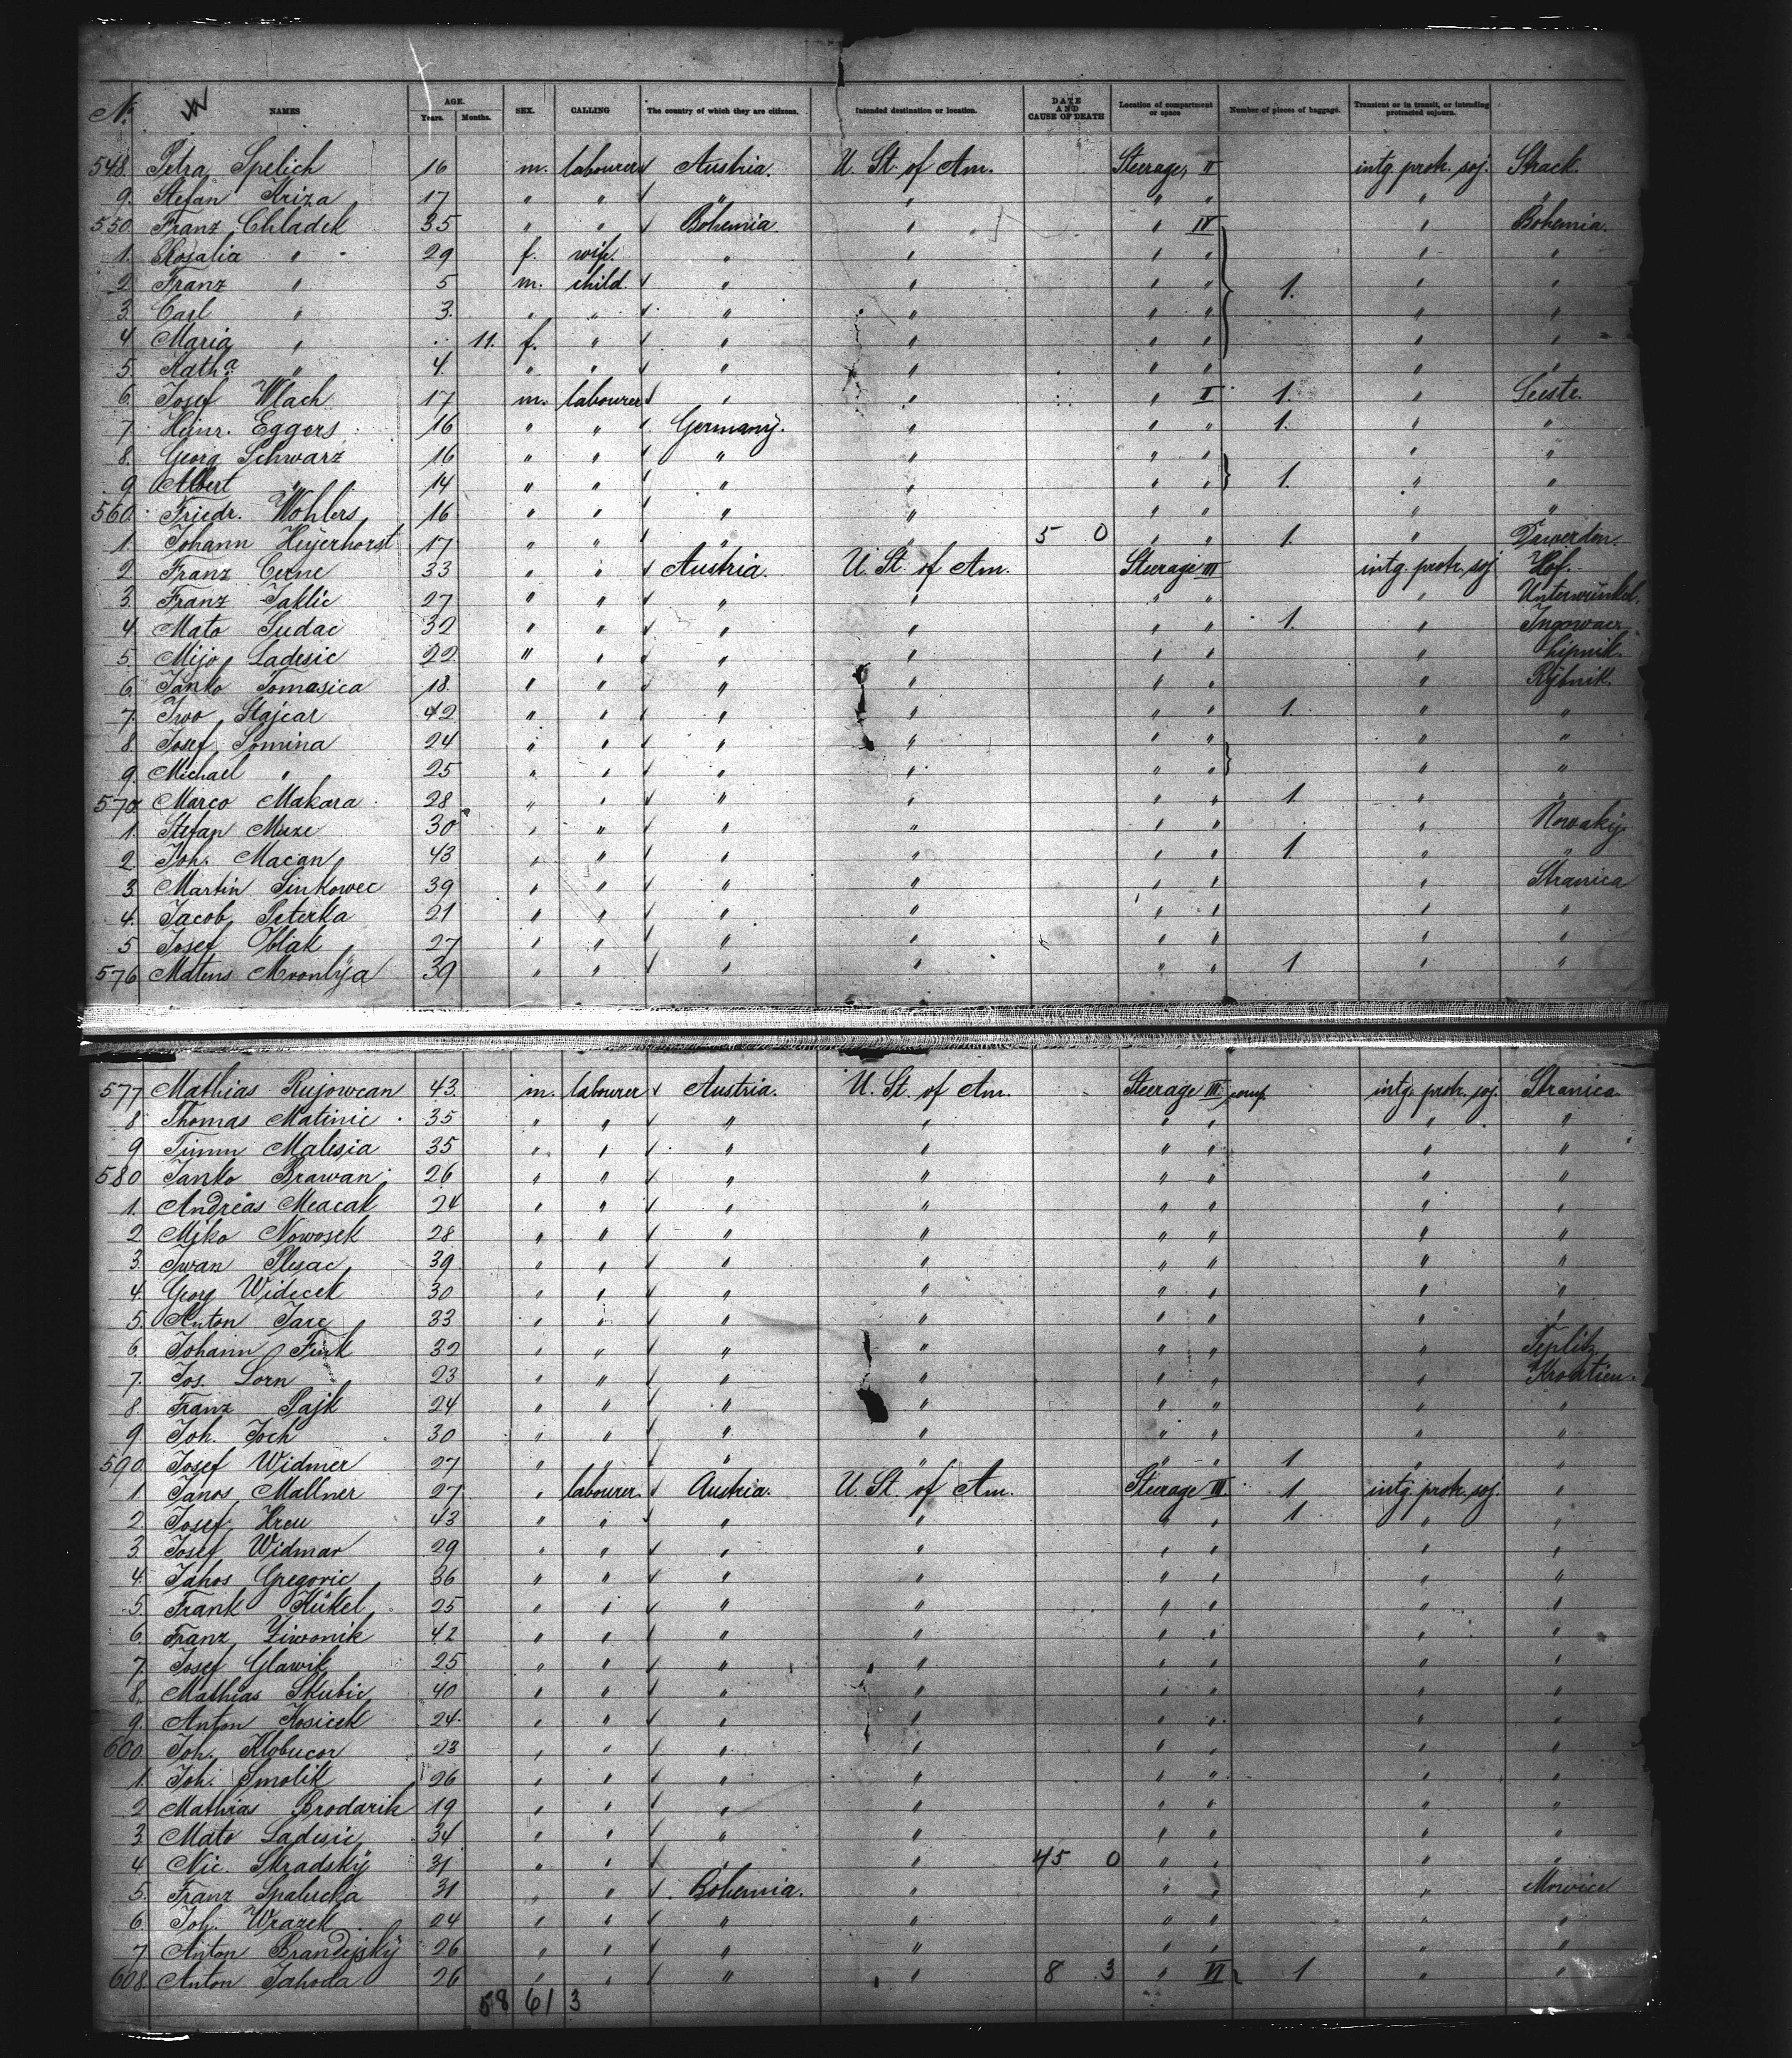 No. NAMES AGE. Years. Months. SEX. CALLING The country of which they are citizens. Intended destination or location. DATE AND CAUSE OF DEATH Location of compartment or space Number of pieces of baggage. Transient or in transit, or intending protracted sojourn.
548. Petra Spelich 16 m. labourer Austria. U. St. of Am. Steerage, II intg. protr. soj. Strack.
9. Stefan Kriza 17 " " " " " " " "
550. Franz Chladek 35 " " Bohemia. " " IV " Bohemia.
1. Rosalia " 29 f. wife. " " " " " "
2. Franz " 5 m. child. " " " " 1. " "
3. Carl " 3. " " " " " " " "
4. Maria " 11. f. " " " " " " "
5. Katha " 4. " " " " " " " "
6. Josef Wlach 17 m. labourer " " " I 1. " Leeste.
7. Heinr. Eggers 16 " " Germany. " " " 1. " "
8. Georg Schwarz 16 " " " " " " " "
9. Albert " 14 " " " " " " 1. " "
560. Friedr. Wohlers 16 " " " " " " " "
1. Johann Heyerhorst 17 " " " " 5 0 " " 1. " Daverden.
2. Franz Cerne 33 " " Austria. U. St. of Am. Steerage III intg. protr. soj. Hof.
3. Franz Jaklic 27 " " " " " " " Unterwinkel.
4. Mato Sudac 32 " " " " " " 1. "
5. Mijo Ladesic 22 " " " " " " " Lipnik.
6. Janko Tomasica 18. " " " " " " " Rybnik.
7. Iwo Stajcar 42 " " " " " " 1. " "
8. Josef Somina 24 " " " " " " " "
9. Michael " 25 " " " " " " " "
570. Marco Makara 28 " " " " " " 1. " "
1. Stefan Muze 30 " " " " " " " Nowaky.
2. Joh. Macan 43 " " " " " " 1. " "
3. Martin Sinkowec 39 " " " " " " " Stranica
4. Jacob Peterka 21 " " " " " " " "
5. Josef Oblak 27 " " " " " " " "
576 Mateus 39 " " " " " " 1 " "
577 Mathias Rujowcan 43. m. labourer Austria. U. St. of Am. Steerage III comp. intg. protr. soj. Stranica.
8 Thomas Matinic 35 " " " " " " " "
9 Malesia 35 " " " " " " " "
580 Janko Brawan 26 " " " " " " " "
1. Andreas Meacak 24 " " " " " " " "
2. Miko Nowosek 28 " " " " " " " "
3. Iwan Plesac 39 " " " " " " " "
4. Georg Widecek 30 " " " " " " " "
5. Anton Jarc 33 " " " " " " " "
6. Johann Fink 32 " " " " " " " Teplitz
7. Jos. Lorn 23 " " " " " " " Kroatien.
8. Franz Pajk 24 " " " " " " " "
9. Joh. Joch 30 " " " " " " " "
590. Josef Widmer 27 " " " " " " 1 " "
1. Janos Mallner 27 " labourer. Austria. U. St. of Am. Steerage III. 1 intg. protr. soj. "
2. Josef Hren 43 " " " " " " 1 " "
3. Josef Widmar 29 " " " " " " " "
4. Janos Gregoric 36 " " " " " " " "
5. Frank Kukel 25 " " " " " " " "
6. Franz Ziwonik 42 " " " " " " " "
7. Josef Glawik 25 " " " " " " " "
8. Mathias Skubic 40 " " " " " " " "
9. Anton Kosicek 24 " " " " " " " "
600. Joh. Klobucor 23 " " " " " " " "
1. Joh. Smolik 26 " " " " " " " "
2 Mathias Brodarik 19 " " " " " " " "
3. Mato Ladesic 34 " " " " " " " "
4 Nic. Skradsky 31 " " " " 45 0 " " " "
5. Franz Spalucka 31 " " Bohemia. " " " " Mowice
6. Joh. Wrazek 24 " " " " " " " "
7 Anton Brandejsky 26 " " " " " " " "
608. Anton Jahoda 26 " " " " 8 3 " VI 1 " "
58 61 3